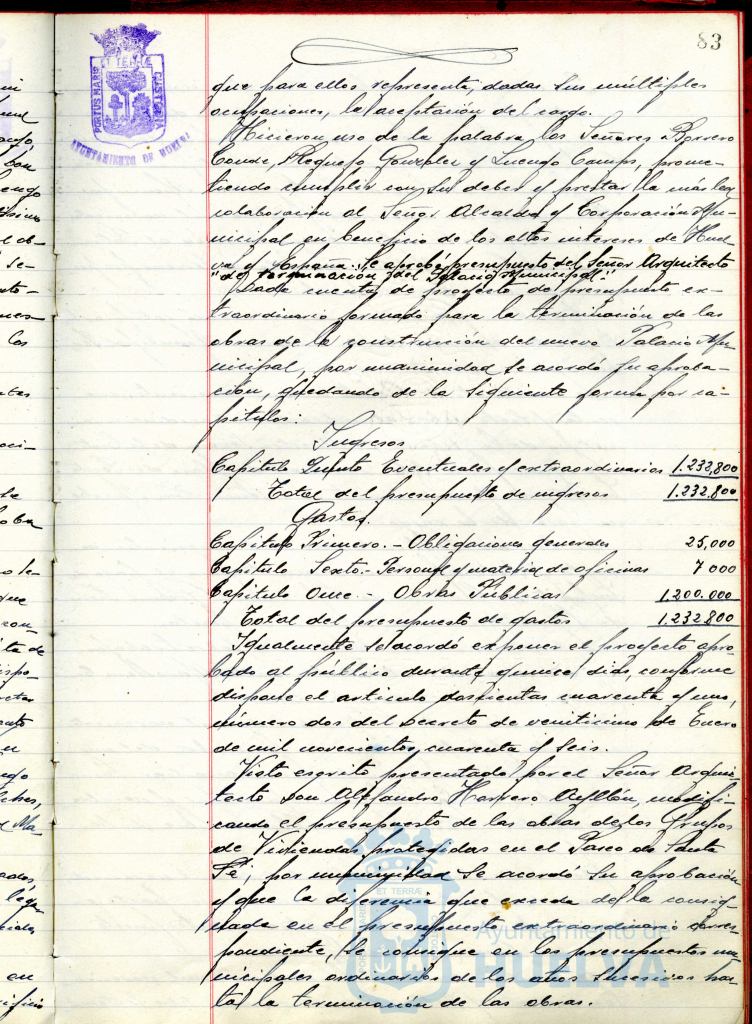 83
PORTUS MARIS ET TERRÆ CUSTODIA
AYUNTAMIENTO DE HUELVA
que para ellos representa, dadas sus múltiples
ocupaciones, la aceptación del cargo.
Hicieron uso de la palabra los Señores Borrero
Conde, Requejo González y Luengo Camps, prome-
tiendo cumplir con su deber y prestar la más leal
colaboración al Señor Alcalde y Corporación Mu-
nicipal en beneficio de los altos intereses de Huel-
va y España. Se aprobó presupuesto del Señor Arquitecto
"de terminación del Palacio Municipal"
Dada cuenta de proyecto de presupuesto ex-
traordinario formado para la terminación de las
obras de la construcción del nuevo Palacio Mu-
nicipal, por unanimidad se acordó su aproba-
ción, quedando de la siguiente forma por ca-
pítulos:
Ingresos
Capítulo Quinto Eventuales y extraordinarios 1.232,800
Total del presupuesto de ingresos 1.232.800
Gastos.
Capítulo Primero.- Obligaciones generales 25,000
Capítulo Sexto.- Personal y material de oficinas 7 000
Capítulo Once.- Obras Públicas 1.200.000
Total del presupuesto de gastos 1.232.800
Igualmente se acordó exponer el proyecto apro-
bado al público durante quince días, conforme
dispone el artículo doscientas cuarenta y uno,
número dos del Decreto de veinticinco de Enero
de mil novecientos cuarenta y seis.
Visto escrito presentado por el Señor Arqui-
tecto Don Alejandro Herrero Ayllón, modifi-
cando el presupuesto de las obras de los Grupos
de Viviendas protegidas en el Paseo de Santa
Fé, por unanimidad se acordó su aprobación
y que la diferencia que exceda de la consig-
nada en el presupuesto extraordinario corres-
pondiente, se consigne en los presupuestos mu-
nicipales ordinarios de los años sucesivos has-
ta la terminación de las obras.
Ayuntamiento de
HUELVA